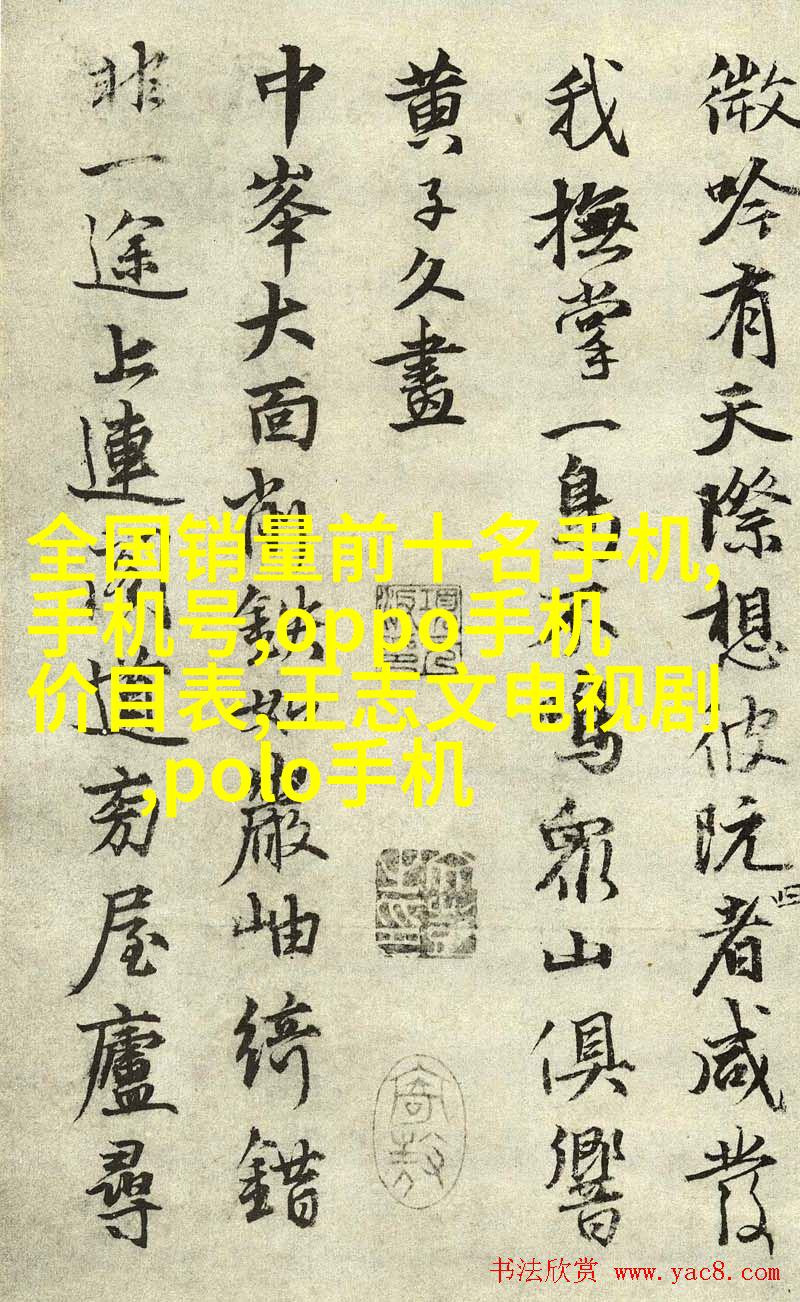 微吟有天際想彼阮者咸發
我撫掌一鳥不鳴衆山俱響
黄子久畫
中峯大面削鐵巖岫綺錯
非一途上連道旁屋廬尋
全国销量前十名手机,
手机号,oppo手机
价目表,王志文电视剧
,polo手机
书法欣赏 www.yac8.com